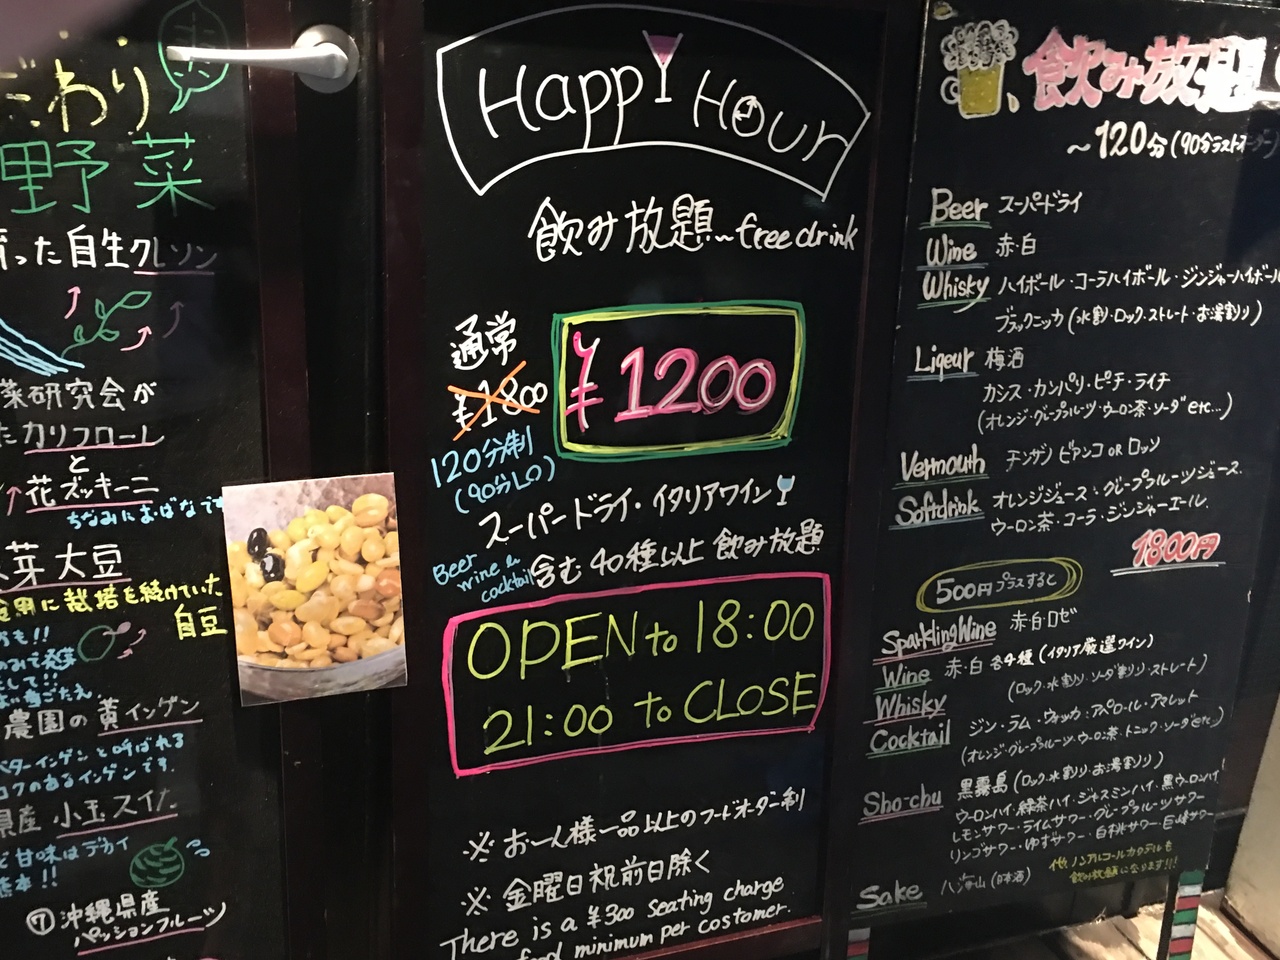 わり
野菜
った自生クレソン
菜研究会が
たカリフローレ
と
花ズッキーニ
ちなみにおばなです
芽大豆
食用に栽培を続けていた
自豆
農園の黄インゲン
バターインゲンと呼ばれる
コクのあるインゲンです.
県産 小玉スイカ
甘味はデカイ
熊本!!
⑦沖縄県産
パッションフルーツ
Happy Hour
飲み放題~free drink
通常
¥1800
¥1200
120分制
(90分LO)
スーパードライ・イタリアワイン
Beer
wine &
cocktail
含む40種以上 飲み放題
OPEN to 18:00
21:00 to CLOSE
※ お一人様一品以上のフードオーダー制
※ 金曜日祝前日除く
There is a ¥300 seating charge
food minimum per costomer.
飲み放題
~120分(90分ラストオーダー)
Beer スーパードライ
Wine 赤・白
Whisky ハイボール・コーラハイボール・ジンジャーハイボール
ブラックニッカ(水割・ロック・ストレート・お湯割り)
Liqeur 梅酒
カシス・カンパリ・ピーチ・ライチ
(オレンジ・グレープフルーツ・ウーロン茶・ソーダetc...)
Vermouth チンザノ ビアンコ OR ロッソ
Softdrink オレンジジュース・グレープフルーツジュース.
ウーロン茶・コーラ・ジンジャーエール.
1800円
500円プラスすると
Sparkling Wine 赤・白・ロゼ
Wine 赤・白 各4種(イタリア厳選ワイン)
Whisky (ロック・水割り・ソーダ割り・ストレート)
Cocktail ジン・ラム・ウォッカ・アペロール・アマレット
(オレンジ・グレープフルーツ・ウーロン茶・トニック・ソーダetc..)
Sho-chu 黒霧島(ロック・水割り・お湯割り)
ウーロンハイ・緑茶ハイ・ジャスミンハイ・黒ウーロンハイ
レモンサワー・ライムサワー・グレープフルーツサワー
リンゴサワー・ゆずサワー・白桃サワー・巨峰サワー
Sake 八海山(日本酒)
他、ノンアルコールカクテルも
飲み放題になります!!!